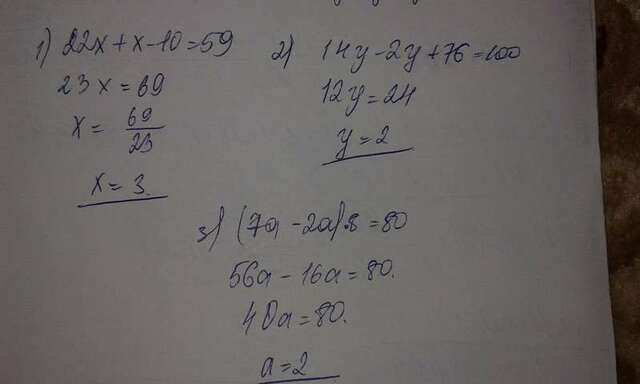 1) 22x + x - 10 = 59
23x = 69
x = 69/23
x = 3.
2) 14y - 2y + 76 = 100
12y = 24
y = 2
3) (7a - 2a) · 8 = 80
56a - 16a = 80.
40a = 80.
a = 2